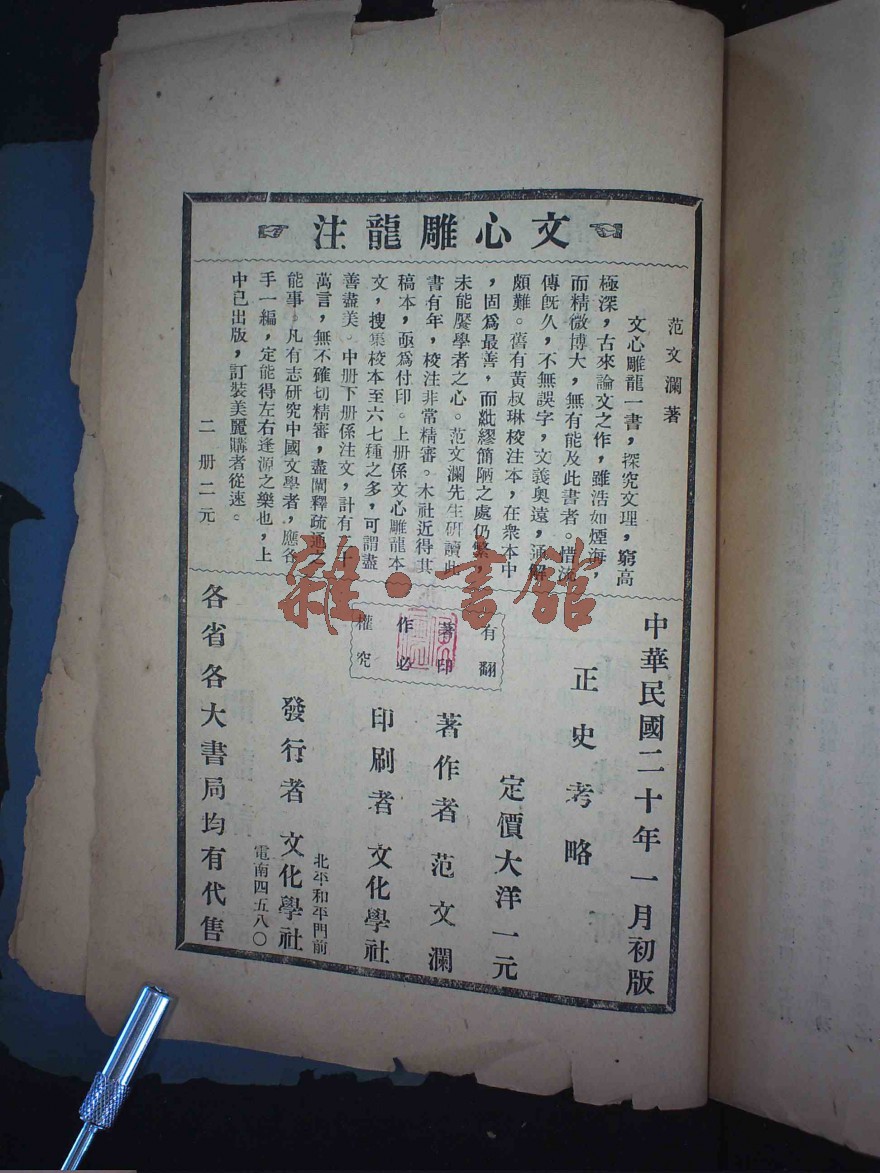 文心雕龍注
范文瀾著
文心雕龍一書，探究文理，窮高
極深，古來論文之作，雖浩如煙海，
而精微博大，無有能及此書者。惜流
傳既久，不無誤字，文義奧遠，通解
頗難。舊有黃叔琳校注本，在衆本中
，固爲最善，而紕繆簡陋之處仍繁，
未能饜學者之心。范文瀾先生研讀此
書有年，校注非常精審。本社近得其
稿本，亟爲付印。上册係文心雕龍本
文，搜集校本至六七種之多，可謂盡
善盡美。中册下册係注文，計有 十
萬言，無不確切精審，盡闡釋疏通之
能事。凡有志研究中國文學者，應各
手一編，定能得左右逢源之樂也，上
中已出版，訂裝美麗購者從速。
二册二元
中華民國二十年一月初版
正史考略
定價大洋一元
有著作權
翻印必究
著作者 范文瀾
印刷者 文化學社
發行者 文化學社
北平和平門前
電南四五八〇
各省各大書局均有代售
雜·書館